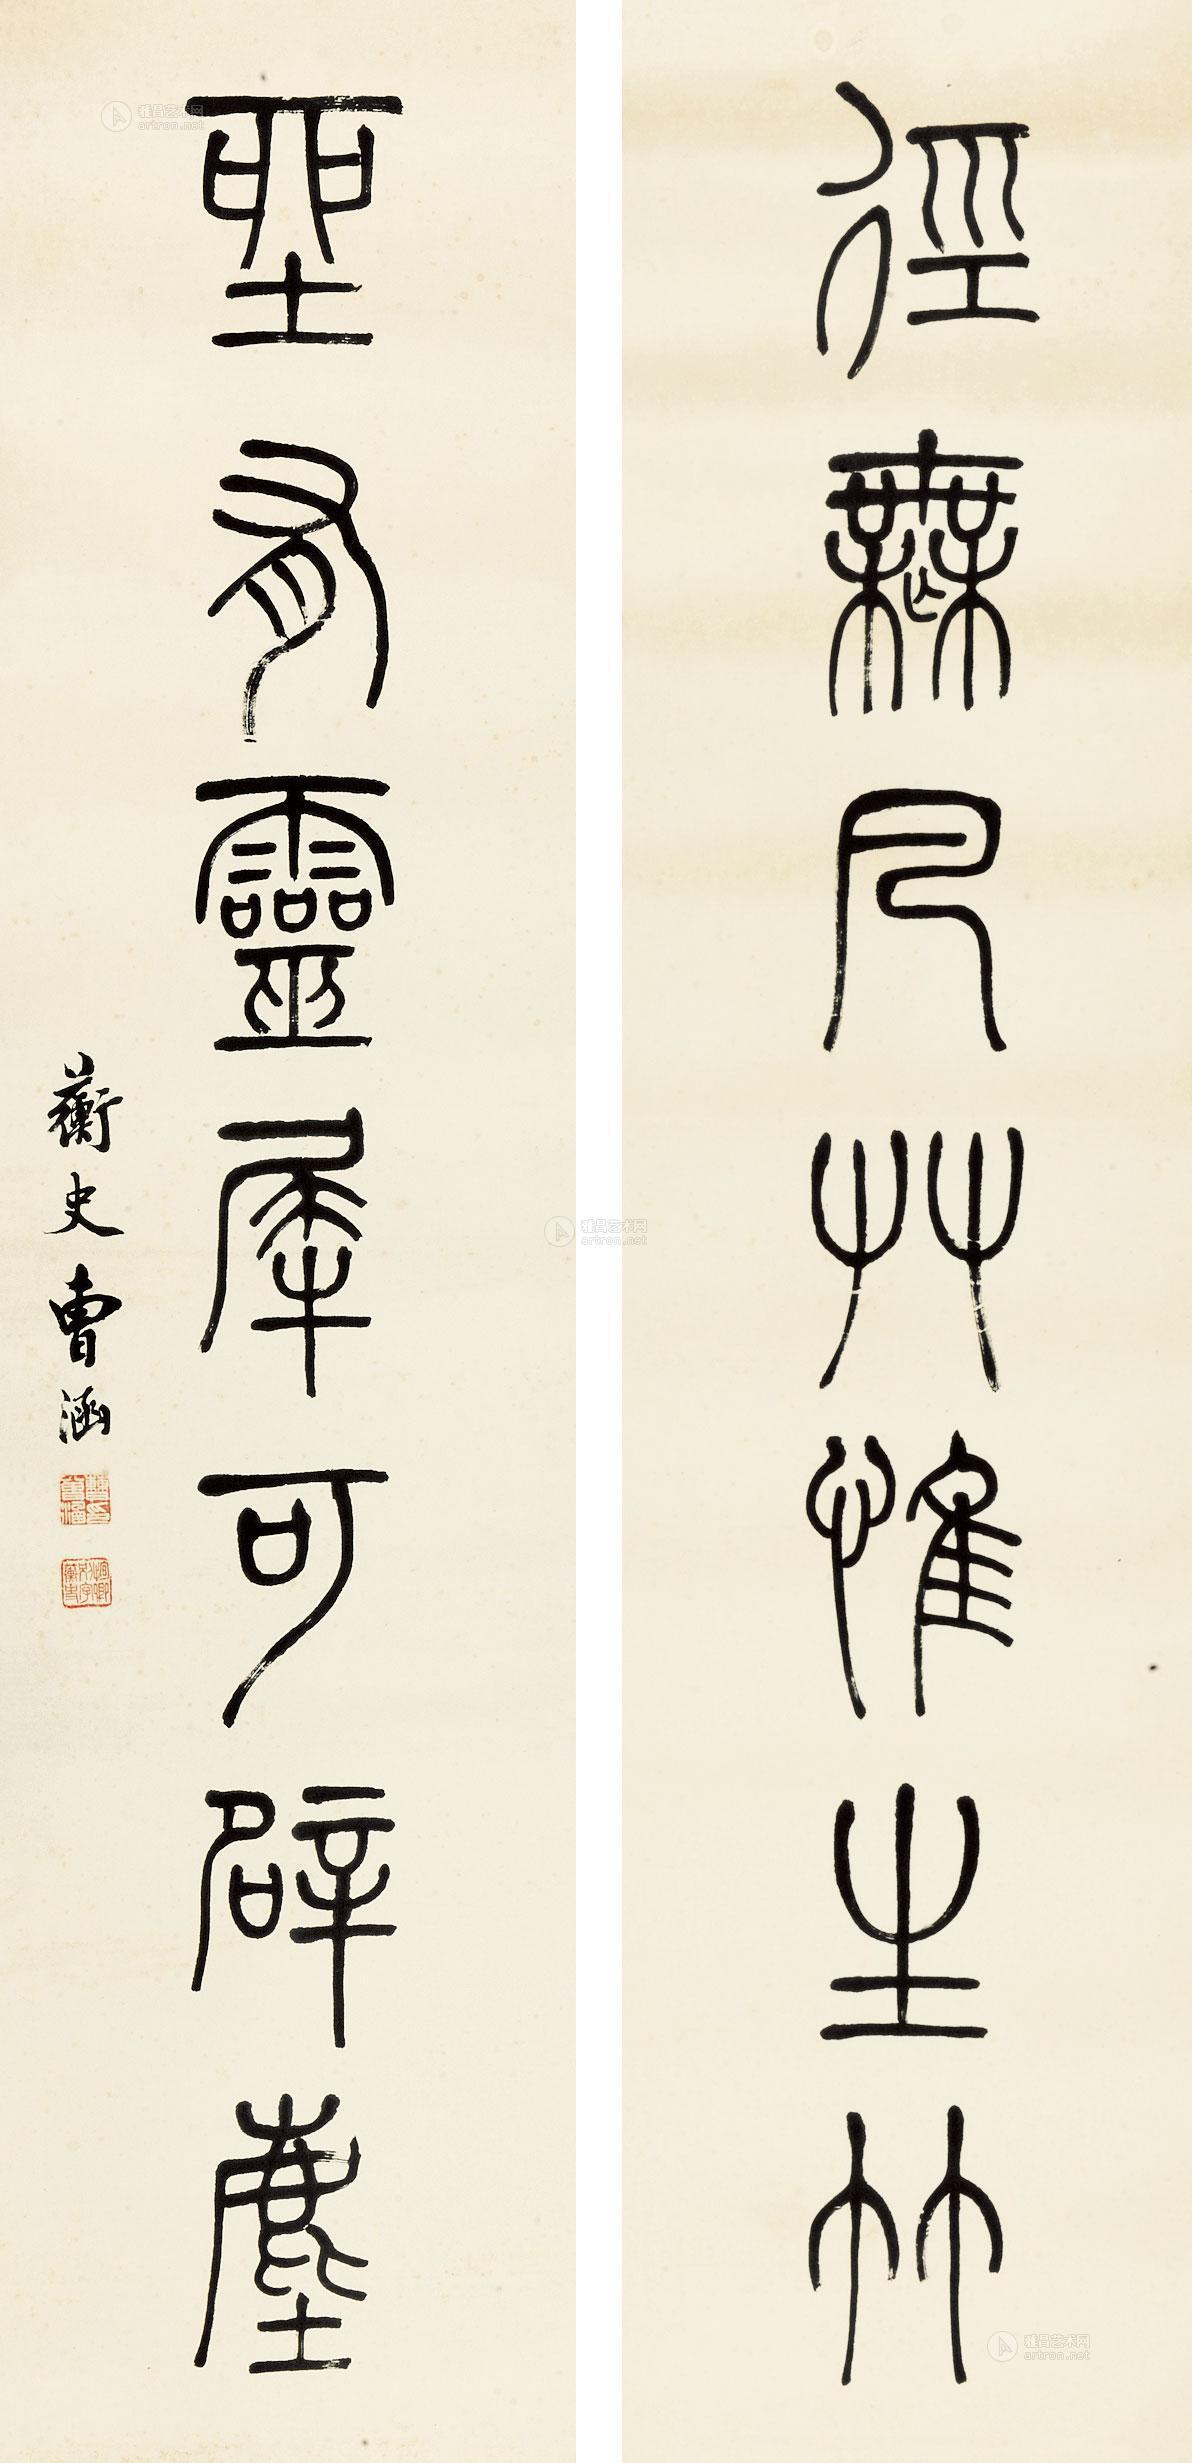 徑無凡艸惟生竹
坐有靈犀可辟塵
蘅史曹涵
雅昌艺术网
artron.net
雅昌艺术网
artron.net
雅昌艺术网
artron.net